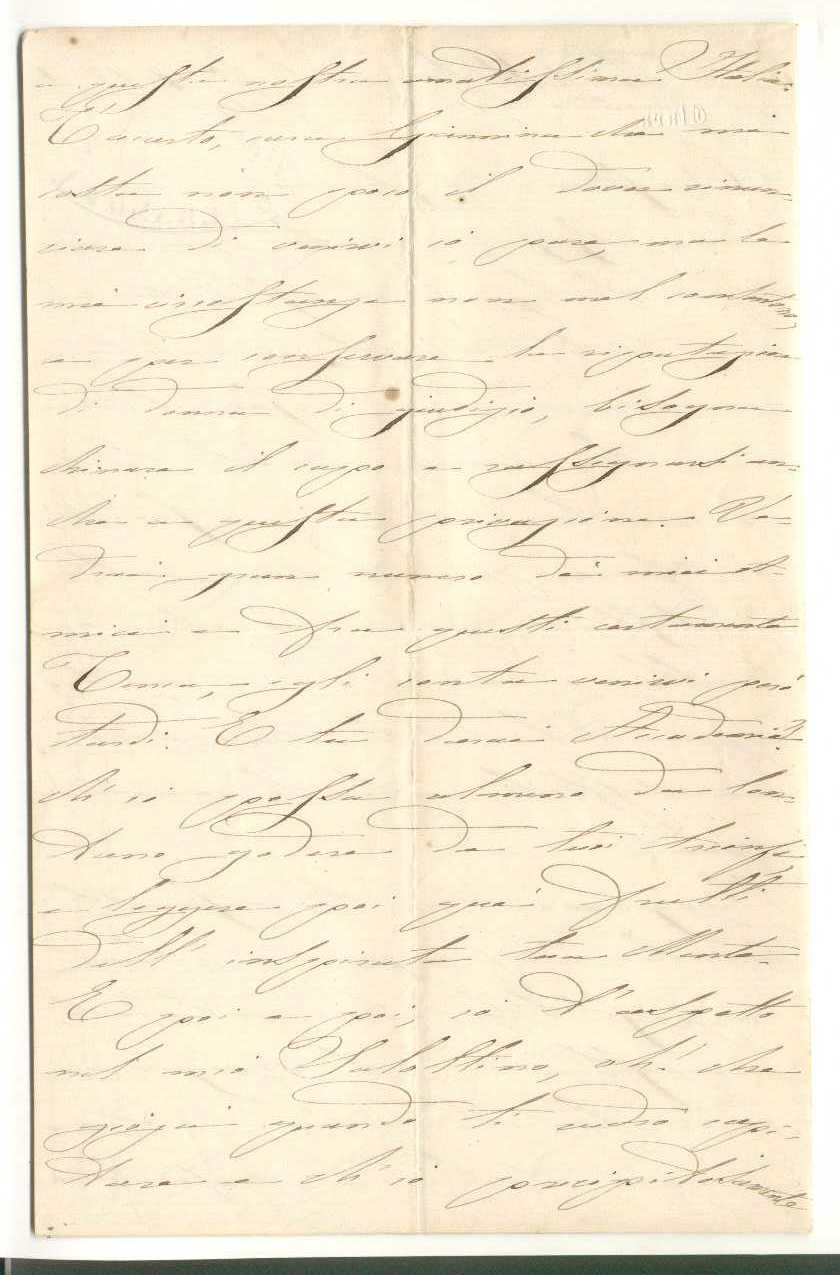 a questa nostra amatissima Italia.
T'accerto, cara Giannina che mi
costa non poco il dover rinun-
ciare di venirvi io pure, ma le
mie circostanze non mel consentono,
e per conservare la riputazione
di donna di giudizio, bisogna
chinare il capo e rassegnarsi an-
che a questa privazione. Ve-
drai gran numero de' miei a-
mici e fra questi certamente
Tenca, egli conta venirvi però
tardi. E tu darai Accademia?
ch'io possa almeno da lon-
tano godere de tuoi trionfi
e leggere poi que' frutti
dell' inspirata tua Mente.
E poi e poi, io t'aspetto
nel mio Salottino, oh! che
gioja quando ti vedrò capi-
tare e ch'io precipitosamente